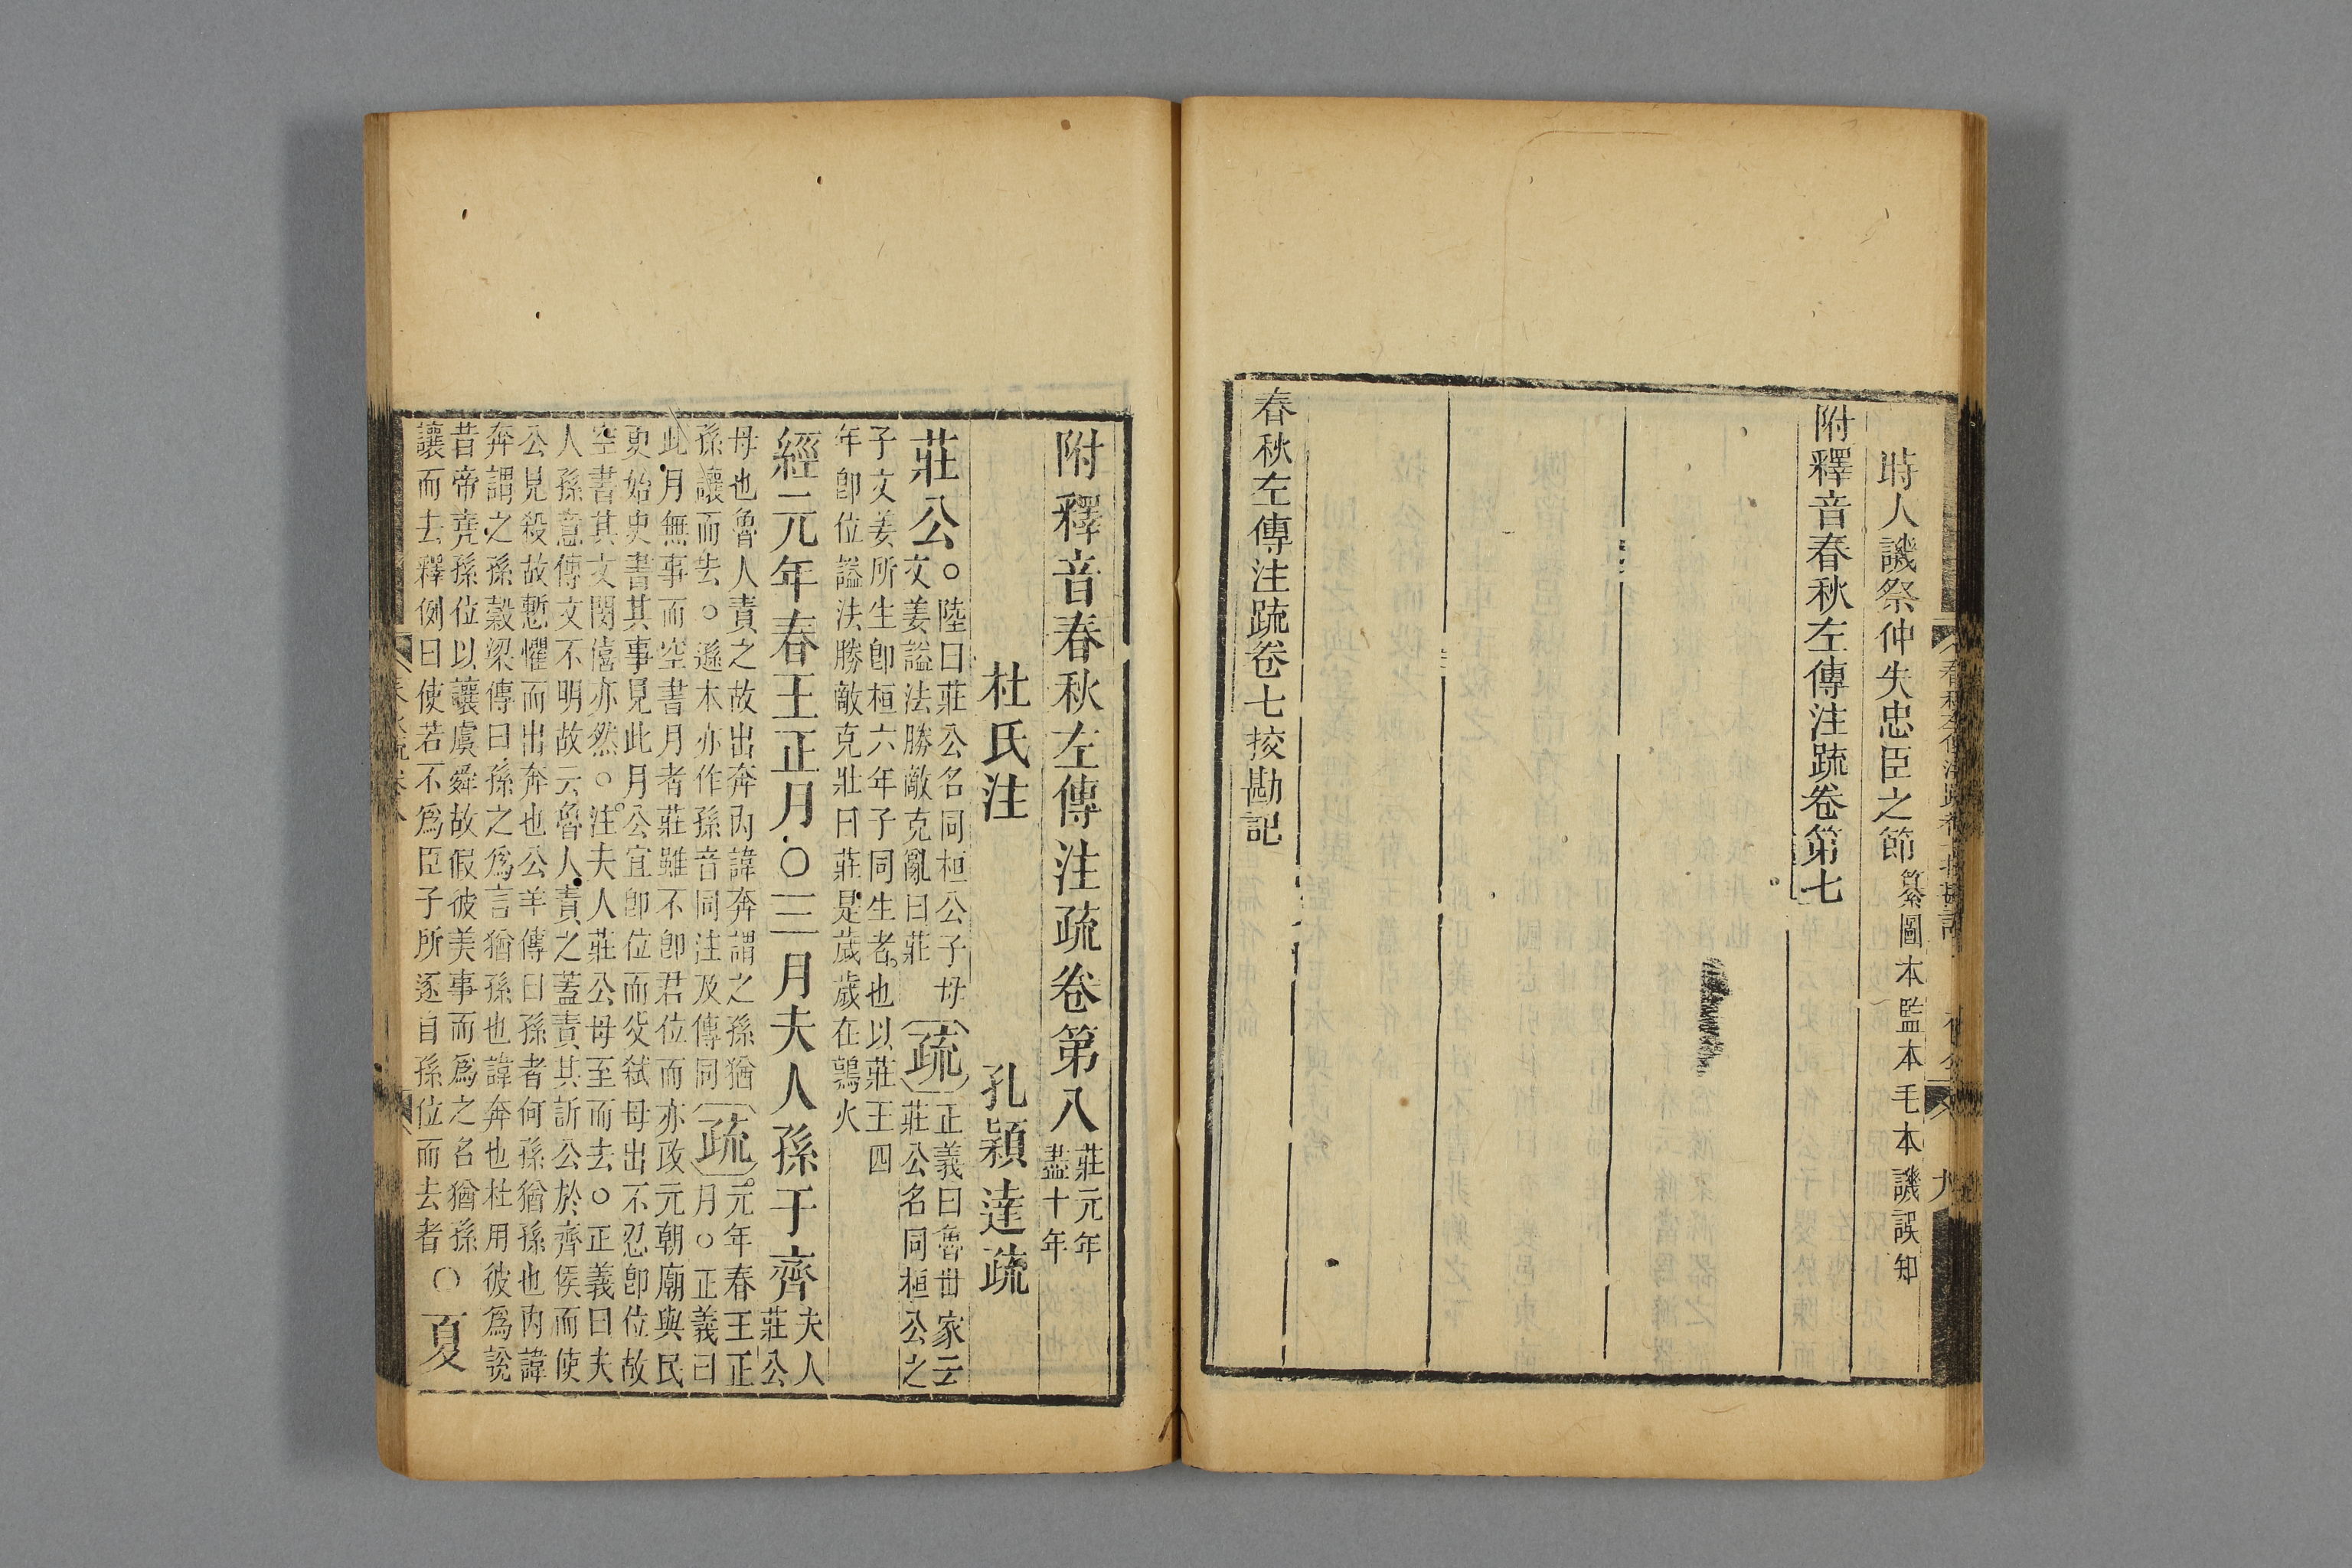 時人譏祭仲失忠臣之節纂圖本監本毛本譏誤知
附釋音春秋左傳注疏卷第七
春秋左傳注疏卷七挍勘記
附釋音春秋左傳注疏卷第八莊元年
盡十年
杜氏注 孔穎達疏
莊公○陸曰莊公名同桓公子母
文姜諡法勝敵克亂曰莊疏正義曰魯世家云
莊公名同桓公之
子文姜所生卽桓六年子同生者也以莊王四
年卽位諡法勝敵克壯曰莊是歲歲在鶉火
經元年春王正月○三月夫人孫于齊夫人
莊公
母也魯人責之故出奔內諱奔謂之孫猶
孫讓而去○遜本亦作孫音同注及傳同疏元年春王正
月○正義曰
此月無事而空書月者莊雖不卽君位而亦改元朝廟與民
更始史書其事見此月公宜卽位而父弒母出不忍卽位故
空書其文閔僖亦然○注夫人莊公母至而去○正義曰夫
人孫意傳文不明故云魯人責之蓋責其訴公於齊侯而使
公見殺故慙懼而出奔也公羊傳曰孫者何孫猶孫也內諱
奔謂之孫穀梁傳曰孫之爲言猶孫也諱奔也杜用彼爲說
昔帝堯孫位以讓虞舜故假彼美事而爲之名猶孫
讓而去釋例曰使若不爲臣子所逐自孫位而去者○夏